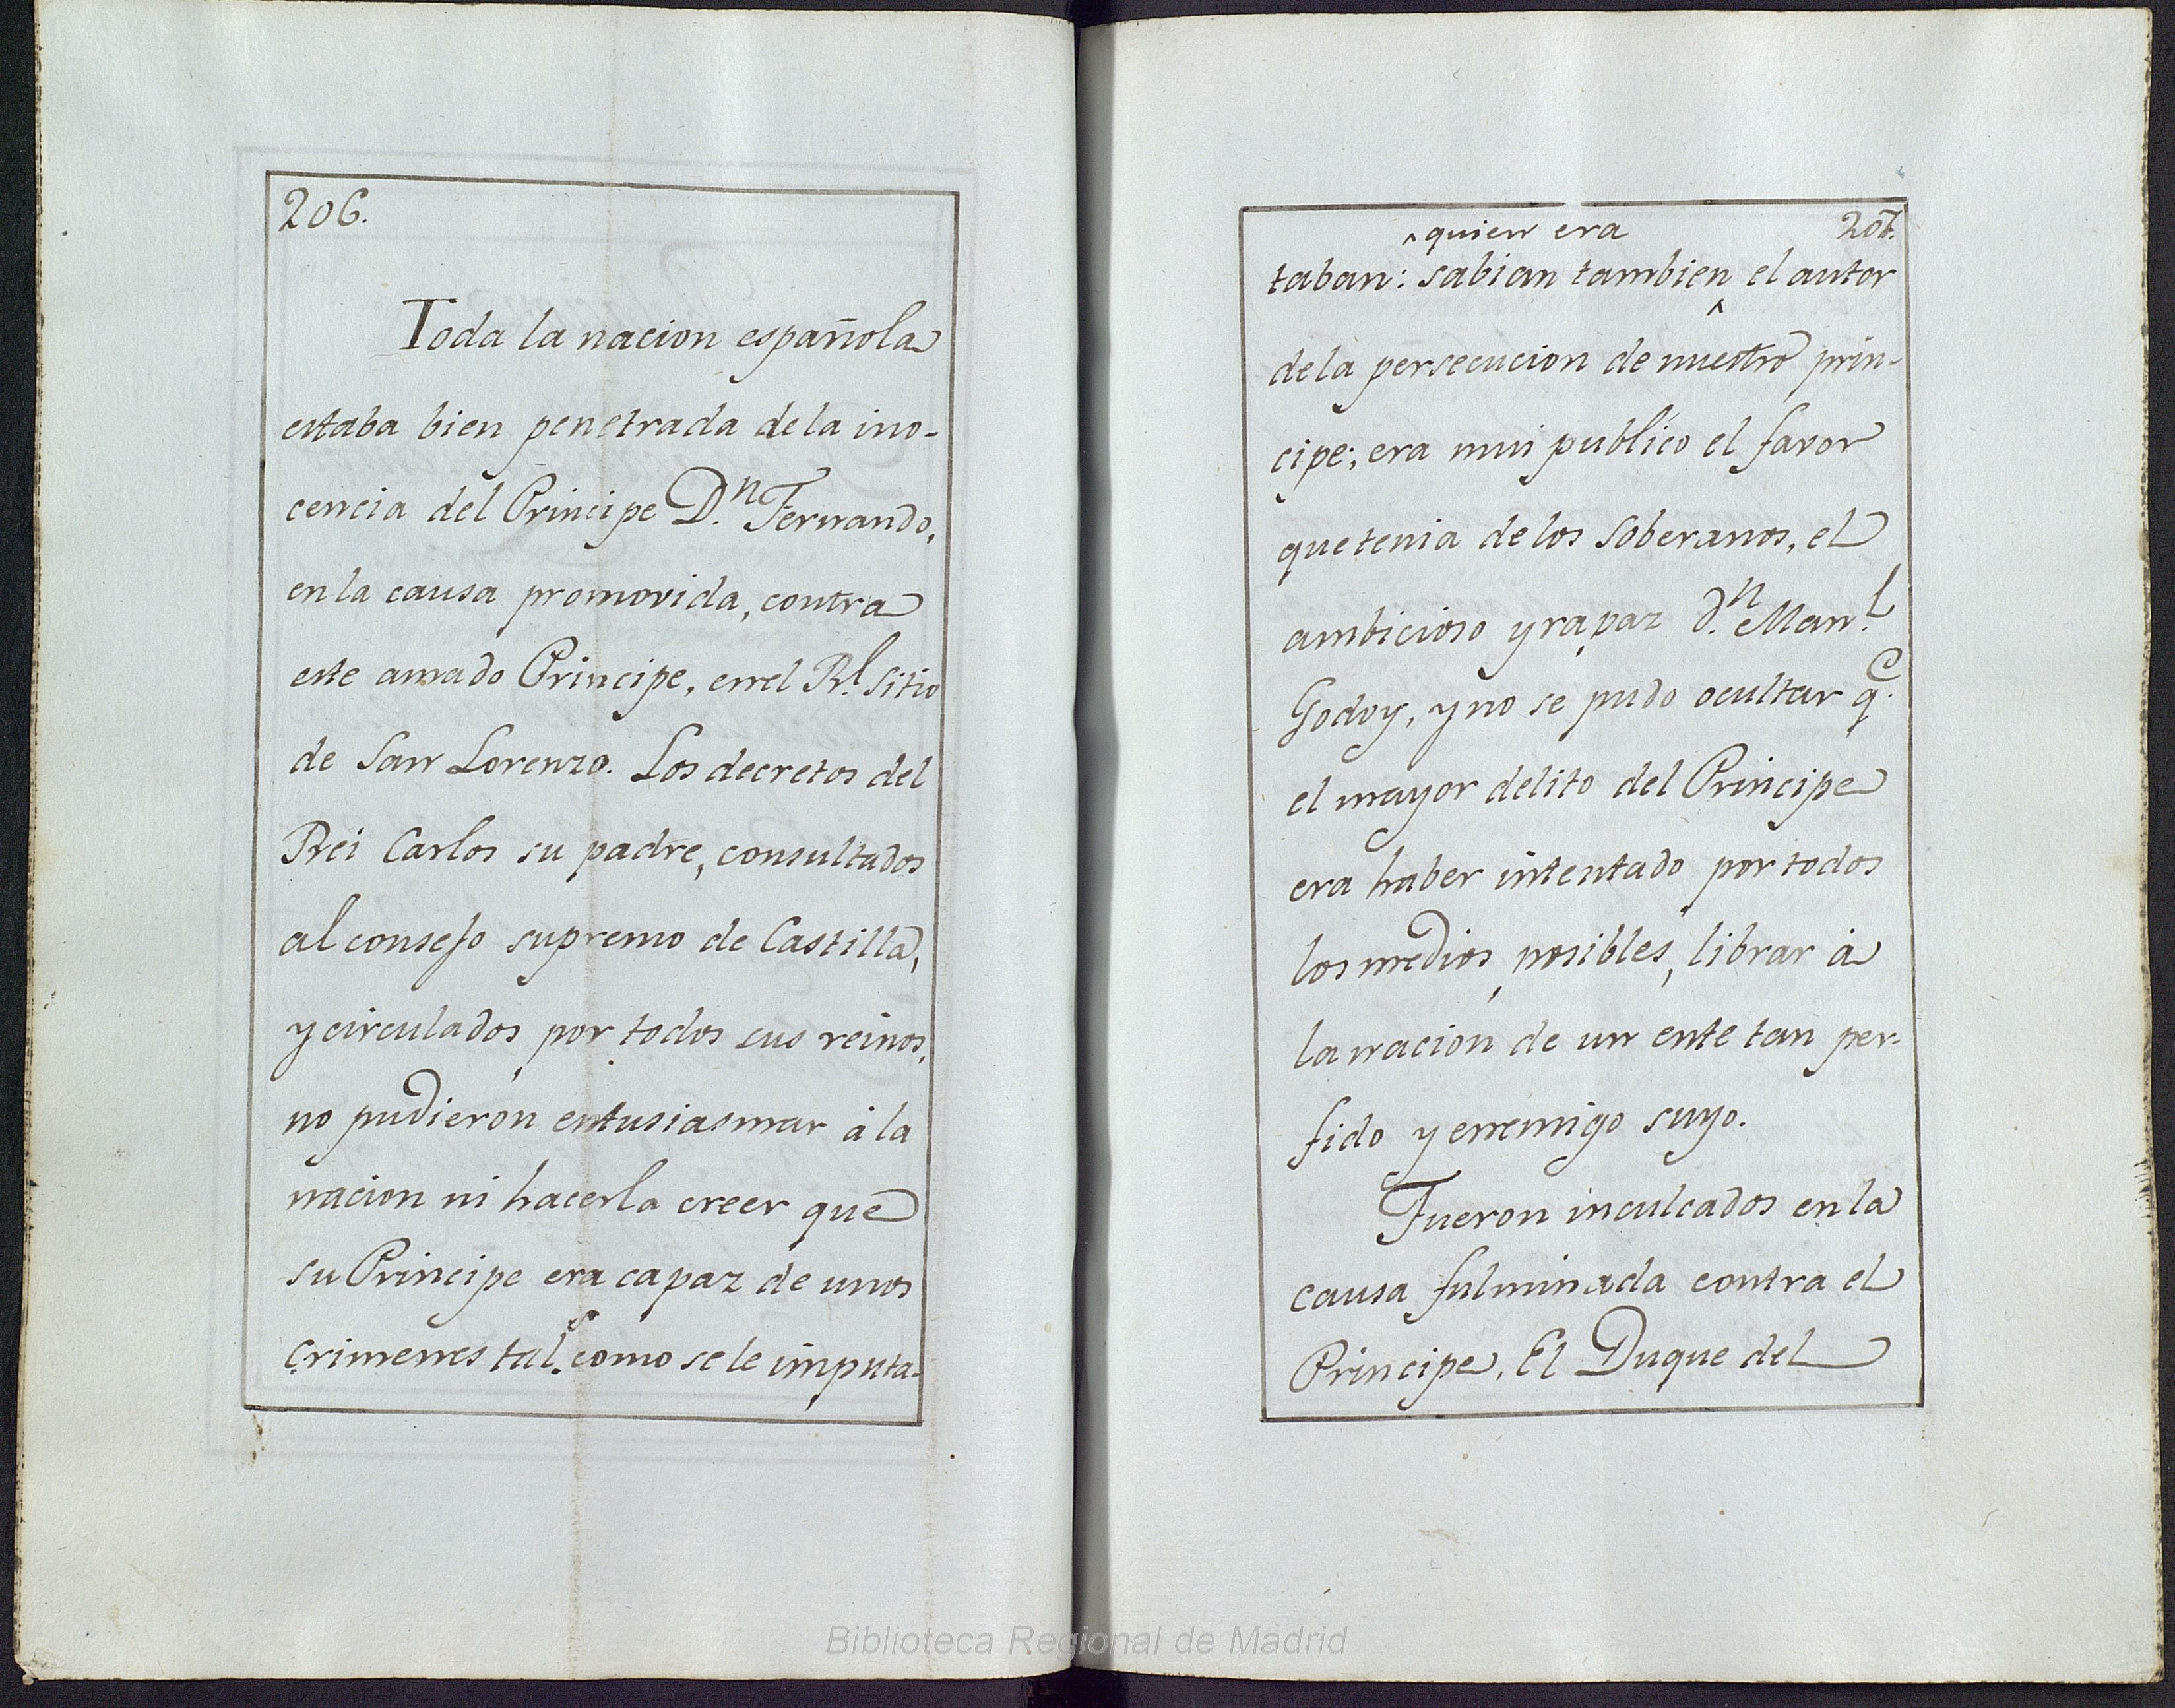 206.
Toda la nacion española
estaba bien penetrada de la ino-
cencia del Principe D.n Fernando,
en la causa promovida, contra
este amado Principe, en el Rl. sitio
de San Lorenzo. Los decretos del
Rei Carlos su padre, consultados
al consejo supremo de Castilla,
y circulados por todos sus reinos,
no pudieron entusiasmar à la
nacion ni hacerla creer que
su Principe era capaz de unos
crimenes tal.s como se le imputa-
207.
^quien era
taban: sabian tambien ^ el autor
de la persecucion de nuestro prin-
cipe; era mui publico el favor
que tenia de los soberanos, el
ambicioso y rapaz d.n Man.l
Godoy, y no se pudo ocultar q.e
el mayor delito del Principe
era haber intentado por todos
los medios posibles, librar à
la nacion de un ente tan per-
fido y enemigo suyo.
Fueron inculcados en la
causa fulminada contra el
Principe, El Duque del
Biblioteca Regional de Madrid